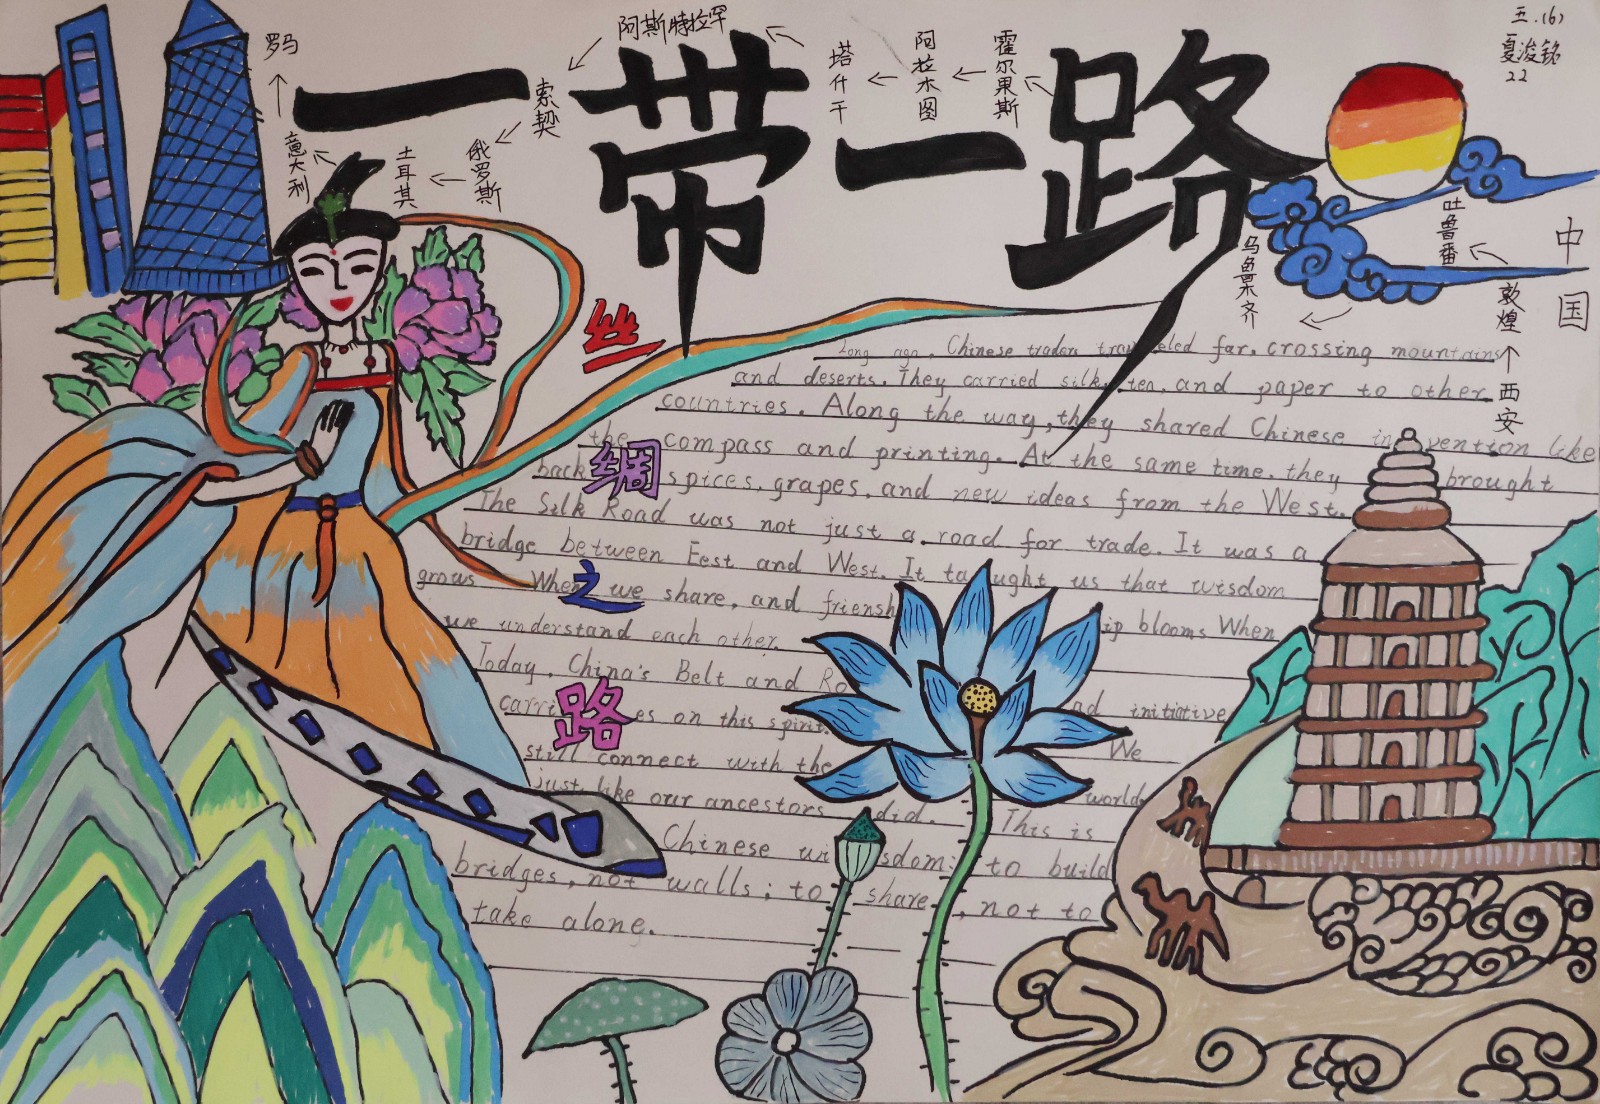 五.(6)
夏浚铭
22
一带一路
中国
西安
敦煌
吐鲁番
乌鲁木齐
霍尔果斯
阿拉木图
塔什干
阿斯特拉罕
索契
俄罗斯
土耳其
意大利
罗马
丝绸之路
Long ago, Chinese traders traveled far, crossing mountains
and deserts. They carried silk, tea, and paper to other
countries. Along the way, they shared Chinese invention like
the compass and printing. At the same time, they brought
back spices, grapes, and new ideas from the West.
The Silk Road was not just a road for trade. It was a
bridge between Eest and West. It taught us that wisdom
grows When we share, and friendship blooms When
we understand each other.
Today, China's Belt and Road initiative
carries on this spirit. We
still connect with the world
just like our ancestors did. This is
Chinese wisdom: to build
bridges, not walls; to share, not to
take alone.